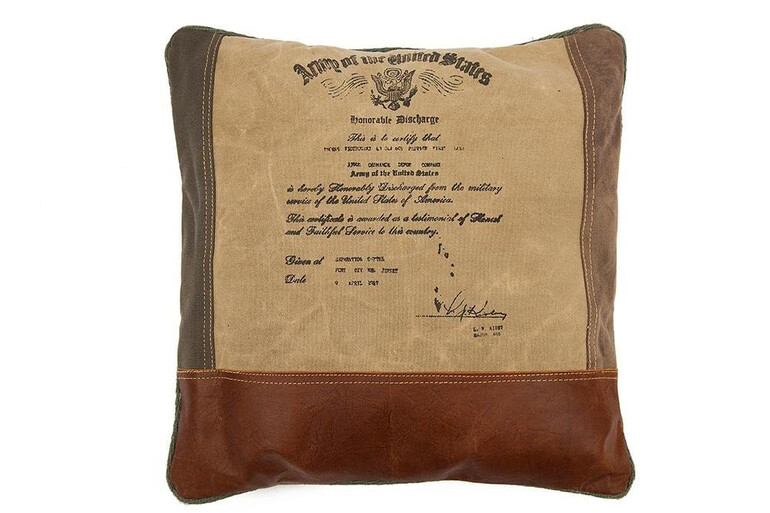 Army of the United States
Honorable Discharge
This is to certify that
ORDNANCE DEPOT COMPANY
Army of the United States
is hereby Honorably Discharged from the military
service of the United States of America.
This certificate is awarded as a testimonial of Honest
and Faithful Service to this country.
Given at SEPARATION CENTER
FORT DIX NEW JERSEY
Date 9 APRIL